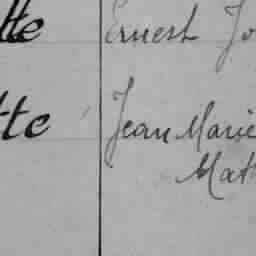 tte Ernest Jo
tte Jean Marie
Mat